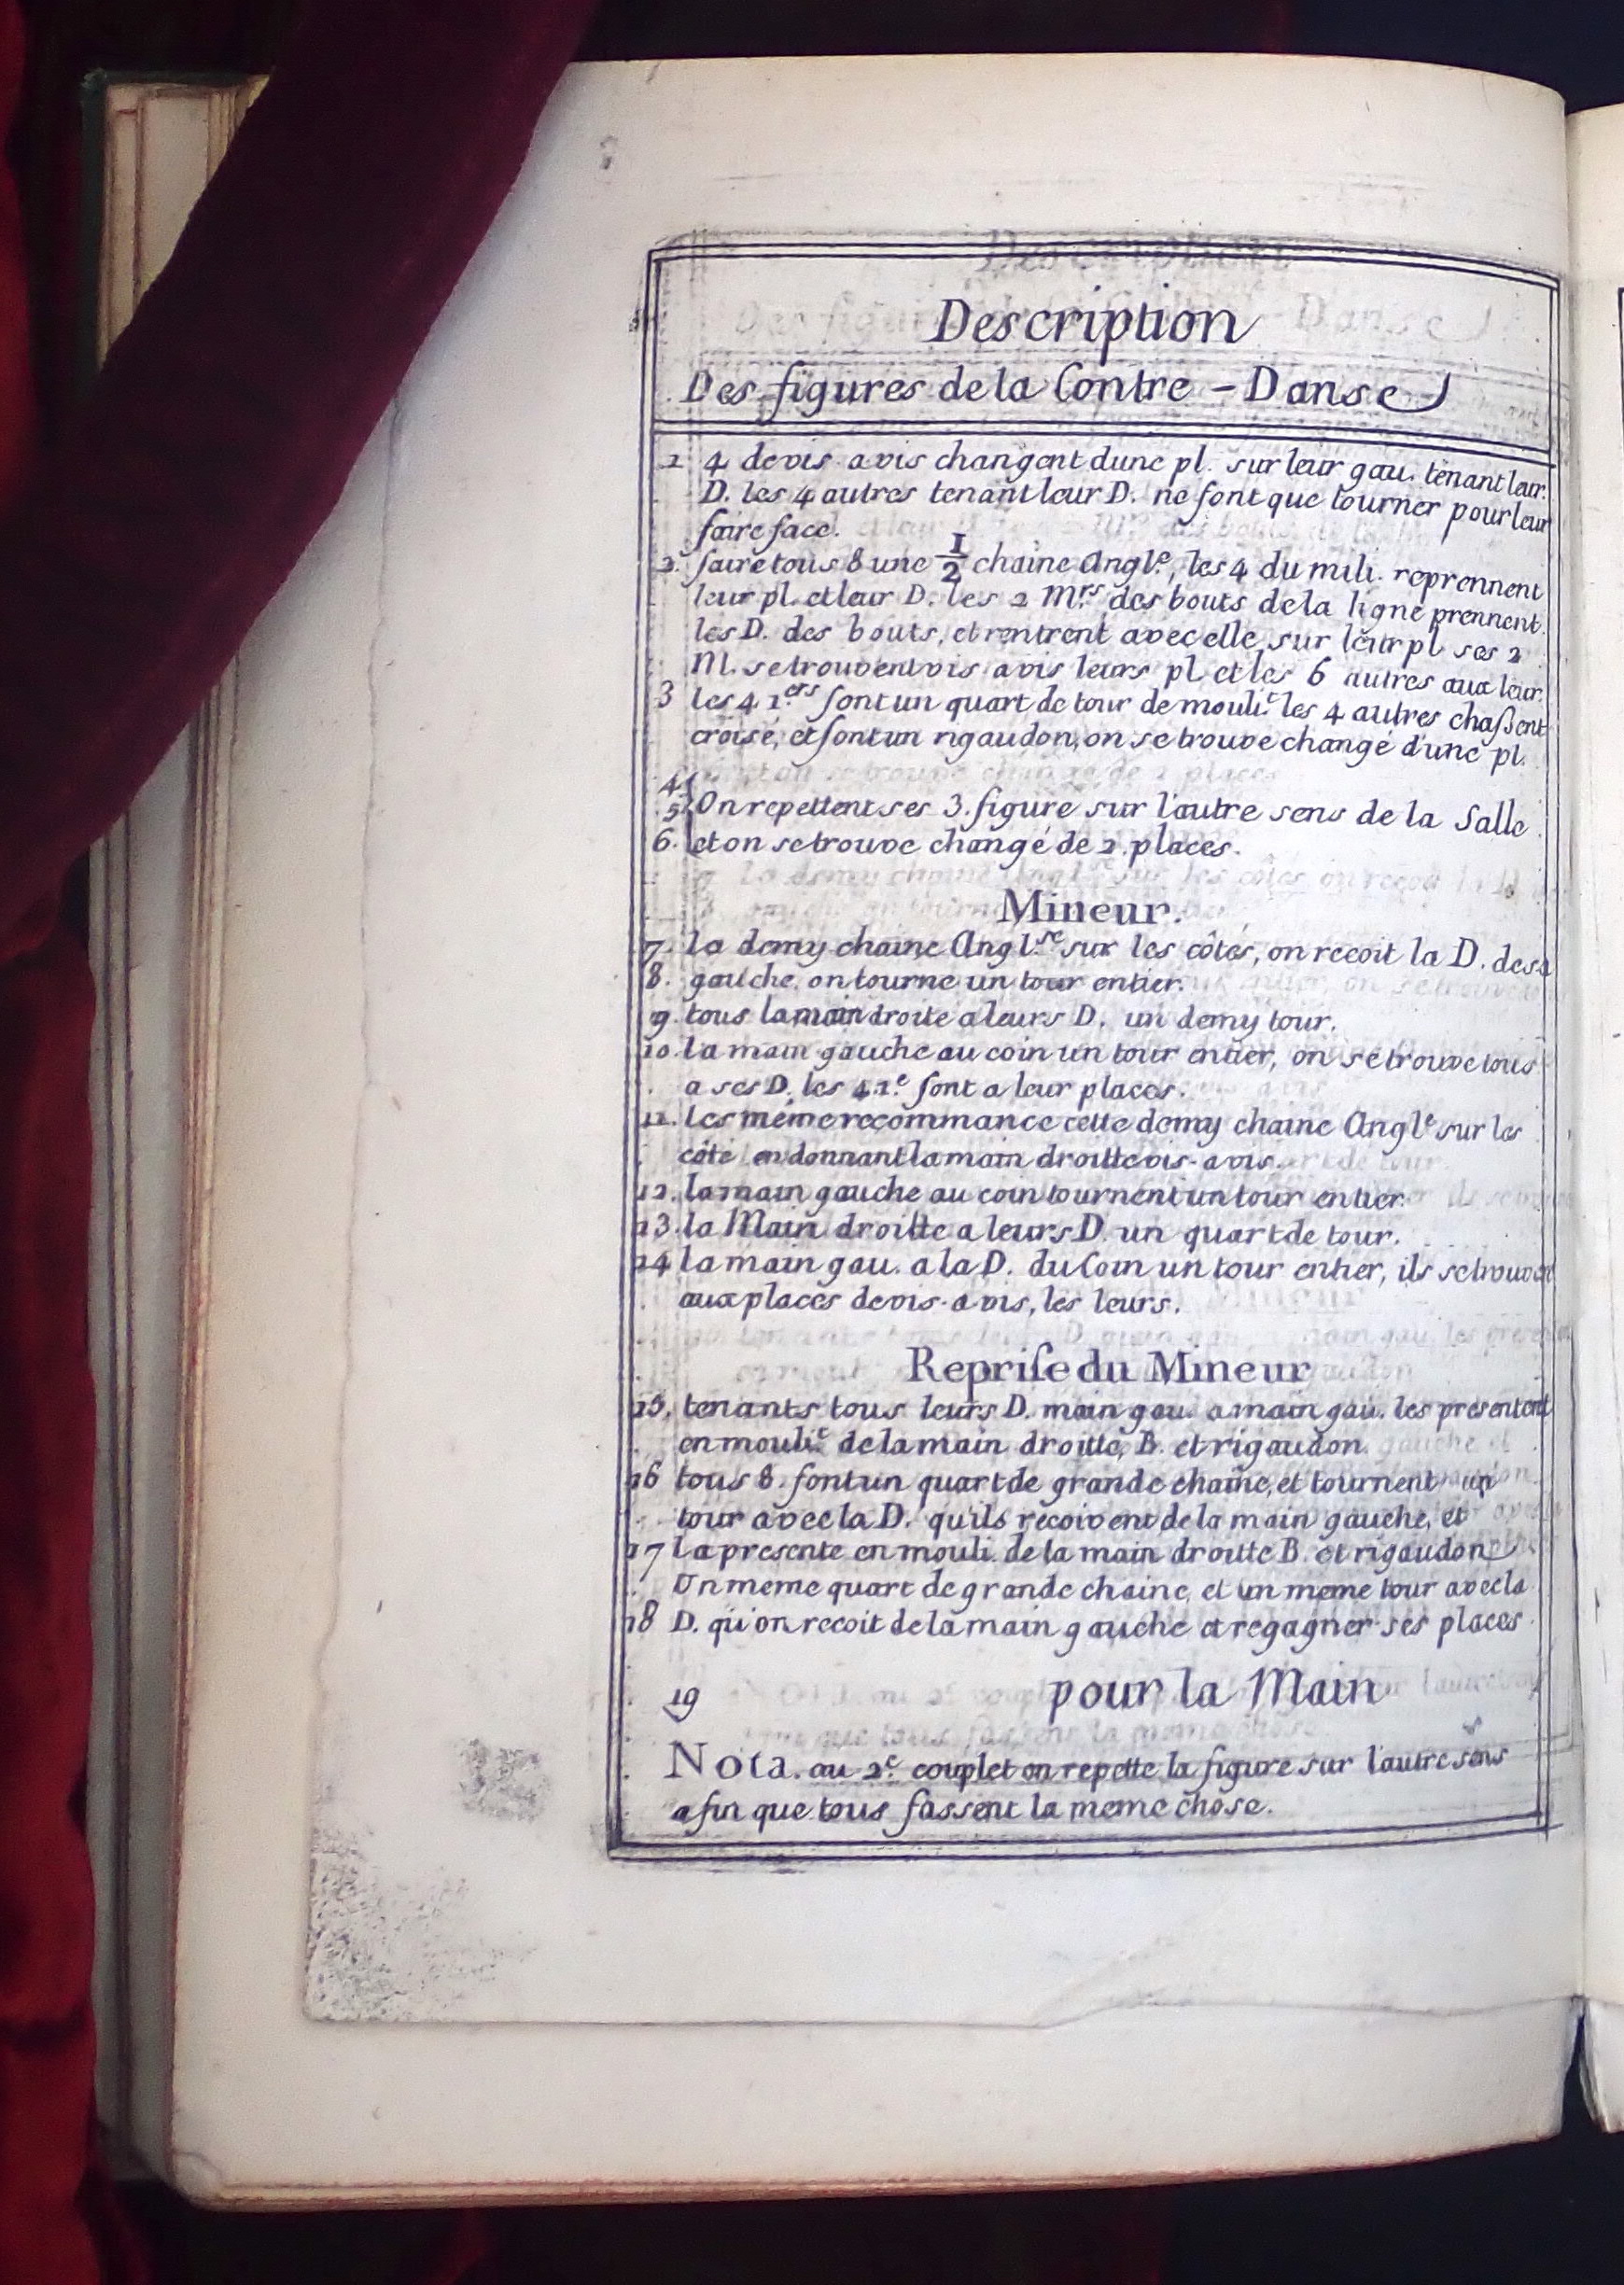 Description
Des figures de la Contre - Danse
1 4 de vis a vis changent dune pl. sur leur gau. tenant leur
D. les 4 autres tenant leur D. ne font que tourner pour leur
faire face.
2. faire tous 8 une 1/2 chaine Angl.e, les 4 du mili. reprennent
leur pl. et leur D. les 2 M.rs des bouts de la ligne prennent
les D. des bouts, et rentrent avec elle sur leur pl ses 2
M. se trouvent vis a vis leurs pl et les 6 autres aux leur.
3 les 4 1.ers font un quart de tour de mouli.t les 4 autres chaſsent
croisé, et font un rigaudon, on se trouve changé d'une pl.
4
5 On repettent ses 3. figure sur l'autre sens de la Salle
6. et on se trouve changé de 2. places.
Mineur.
7. la demy chaine Angl.se sur les côtés, on recoit la D. de sa
8. gauche, on tourne un tour entier.
9. tous la main droite a leurs D. un demy tour.
10. la main gauche au coin un tour entier, on se trouve tous
a ses D. les 4 1.e sont a leur places.
11. les même recommance cette demy chaine Angl.e sur les
côté en donnant la main droitte vis-a vis.
12. la main gauche au coin tournent un tour entier.
13. la Main droitte a leurs D. un quart de tour.
14 la main gau. a la D. du Coin un tour entier, ils se trouvent
aux places de vis-a vis, les leurs.
Repriſe du Mineur
15. tenants tous leurs D. main gau. a main gau. les presentent
en mouli.t de la main droitte, B. et rigaudon.
16 tous 8. font un quart de grande chaine, et tournent un
tour avec la D. qu'ils recoivent de la main gauche, et
17 la presente en mouli. de la main droitte B. et rigaudon
Un meme quart de grande chaine, et un meme tour avec la
18 D. qu'on recoit de la main gauche et regagner ses places
19 pour la Main
Nota. au 2.e couplet on repette la figure sur l'autre sens
afin que tous fassent la meme chose.